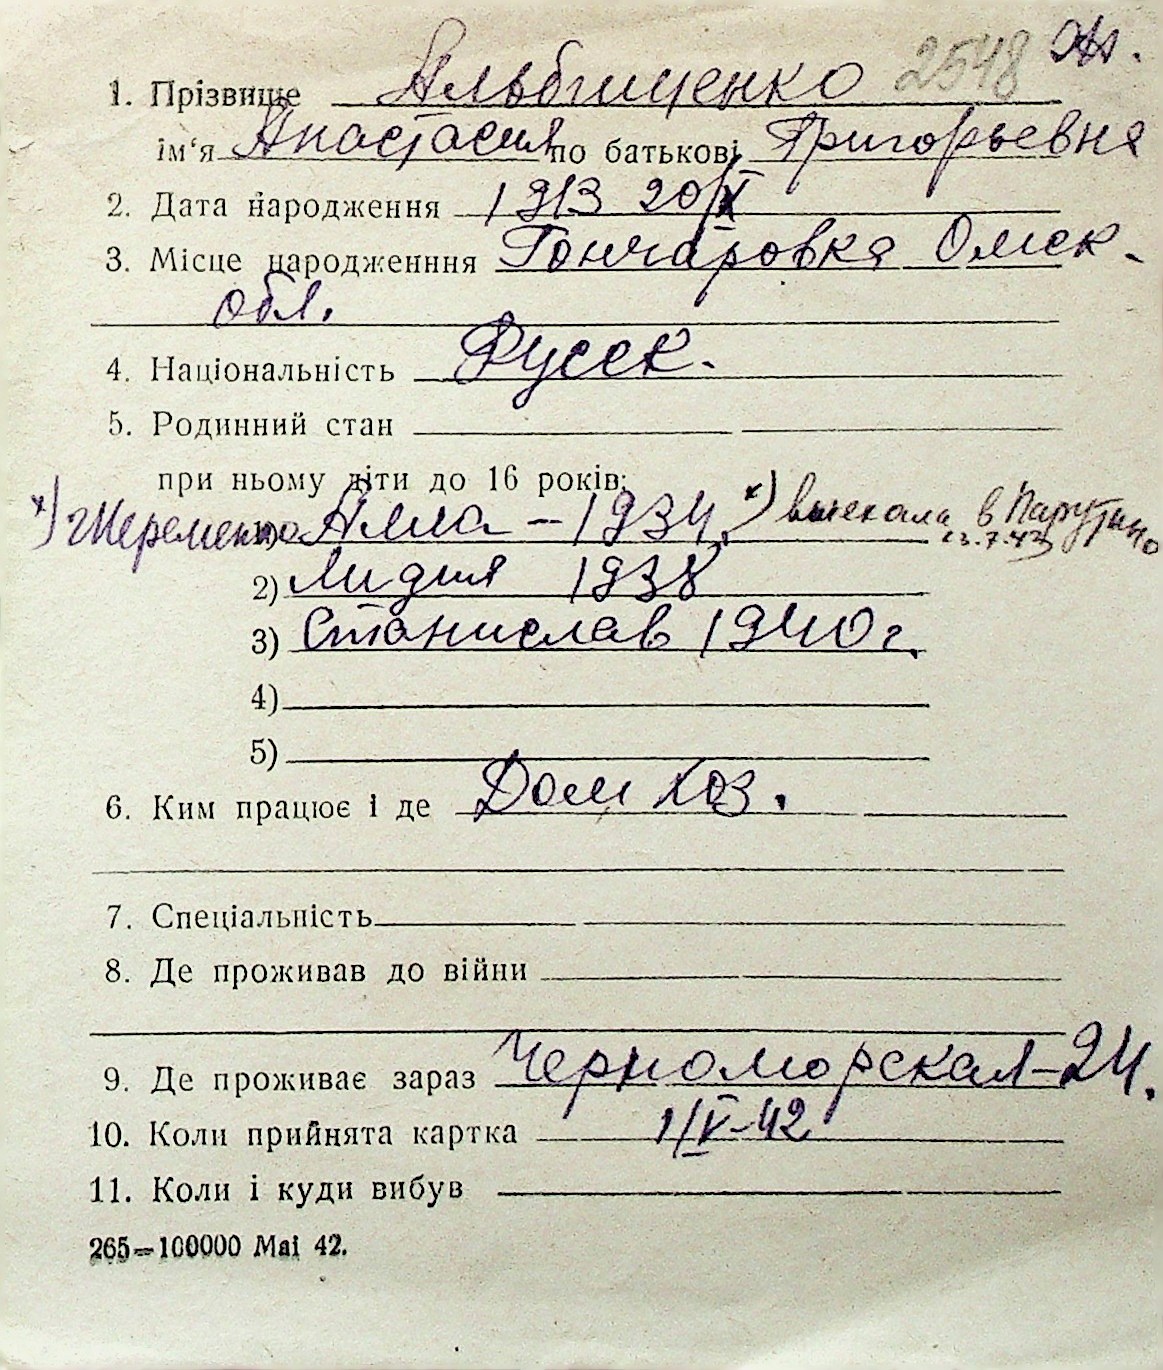 2548
1. Прізвище Альбищенко
ім'я Анастасия по батькові Григорьевна
2. Дата народження 1913 20/X
3. Місце народженння Гончаровка Омск-
обл.
4. Національність Русск.
5. Родинний стан
при ньому діти до 16 років:
х) Жеременко Алла - 1934. х) выехала в Парутино
13.7.43
2) Лидия 1938
3) Станислав 1940 г.
4)
5)
6. Ким працює і де Дом хоз.
7. Спеціальність
8. Де проживав до війни
9. Де проживає зараз Черноморская-24.
10. Коли прийнята картка 1/V-42
11. Коли і куди вибув
265—100000 Mai 42.